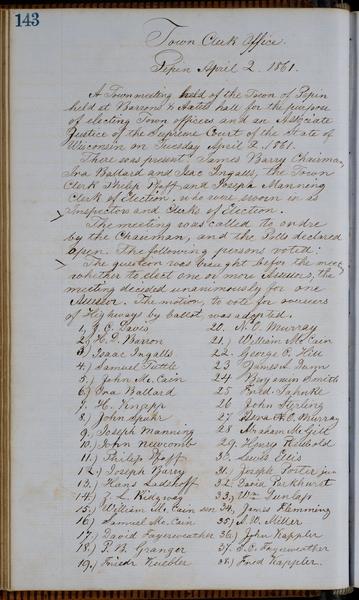 143
Town Clerk Office.
Pepin April 2. 1861.
A Town meeting held of the Town of Pepin
held at Barrons & Axtels hall for the purpose
of electing Town officers and an Associate
Justice of the Supreme Court of the State of
Wisconsin on Tuesday April 2. 1861.
There was present James Barry Chairman,
Ira Ballard and Isac Ingalls, the Town
Clerk Philip Pfaff, and Joseph Manning
Clerk of Election, who were sworn in as
Inspectors and Clerks of Election.
The meeting was called to ordre
by the Chairman, and the Polls declared
open. The following persons voted:
The question was braught befor the meet,
whether to elect one or more Assessors, the
meeting decided unanimously for one
Assessor. The motion, to vote for overseers
of Highways by ballot was adopted.
1, J. C. Davis
2, H. D. Barron
3) Isaac Ingalls
4) Samuel Tuttle
5.) John Mc. Cain
6) Ira Ballard
7, H. Knapp
8.) John
9, Joseph Manning
10, John Newcomb
11.) Philip Pfaff
12.) Joseph Barry
13.) Hans Ladehoff
14.) Z. L. Ridgway
15.) William Mc. Cain sen
16) Samuel Mc. Cain
17.) David Fayerweather
18.) P. B. Granger
19.) Friedr Kuebler
20. N. O. Murray
21.) William Mc. Cain
22. George R. Hill
23 James S. Dunn
24. Benjamin Smith
25. Fred. Jahnke
26 John Sterling
27 A. O. Murray
28 Abraham Mc Gill
29. Henry Reinbold
30. Lewis Ellis
31.) Joseph Porter jun
32. David Parkhurst
33, Wm Dunlap
34. James Flemming
35) A. W. Miller
36) John Kappler
37. S. C. Fayerweather
38.) Fred Kappler.